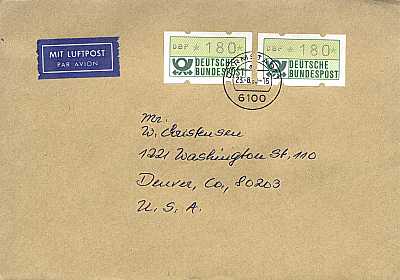 MIT LUFTPOST
PAR AVION
DBP *180*
DEUTSCHE
BUNDESPOST
DBP *180*
DEUTSCHE
BUNDESPOST
6100
Mr.
W. Christensen
1221 Washington St, 110
Denver, Co, 80203
U. S. A.